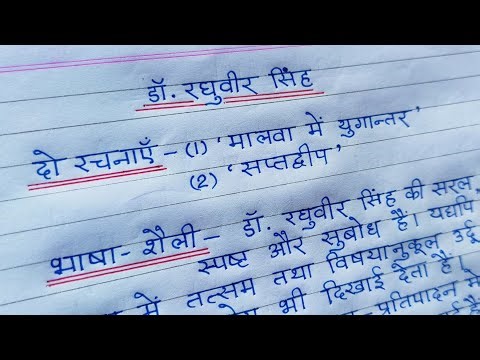 डॉ. रघुवीर सिंह
दो रचनाएँ - (1) 'मालवा में युगान्तर'
(2) 'सप्तद्वीप'
भाषा - शैली - डॉ. रघुवीर सिंह की सरल,
स्पष्ट और सुबोध है। यद्यपि
में तत्सम तथा विषयानुकूल उर्दू
भी दिखाई देता है।
प्रतिपादन में